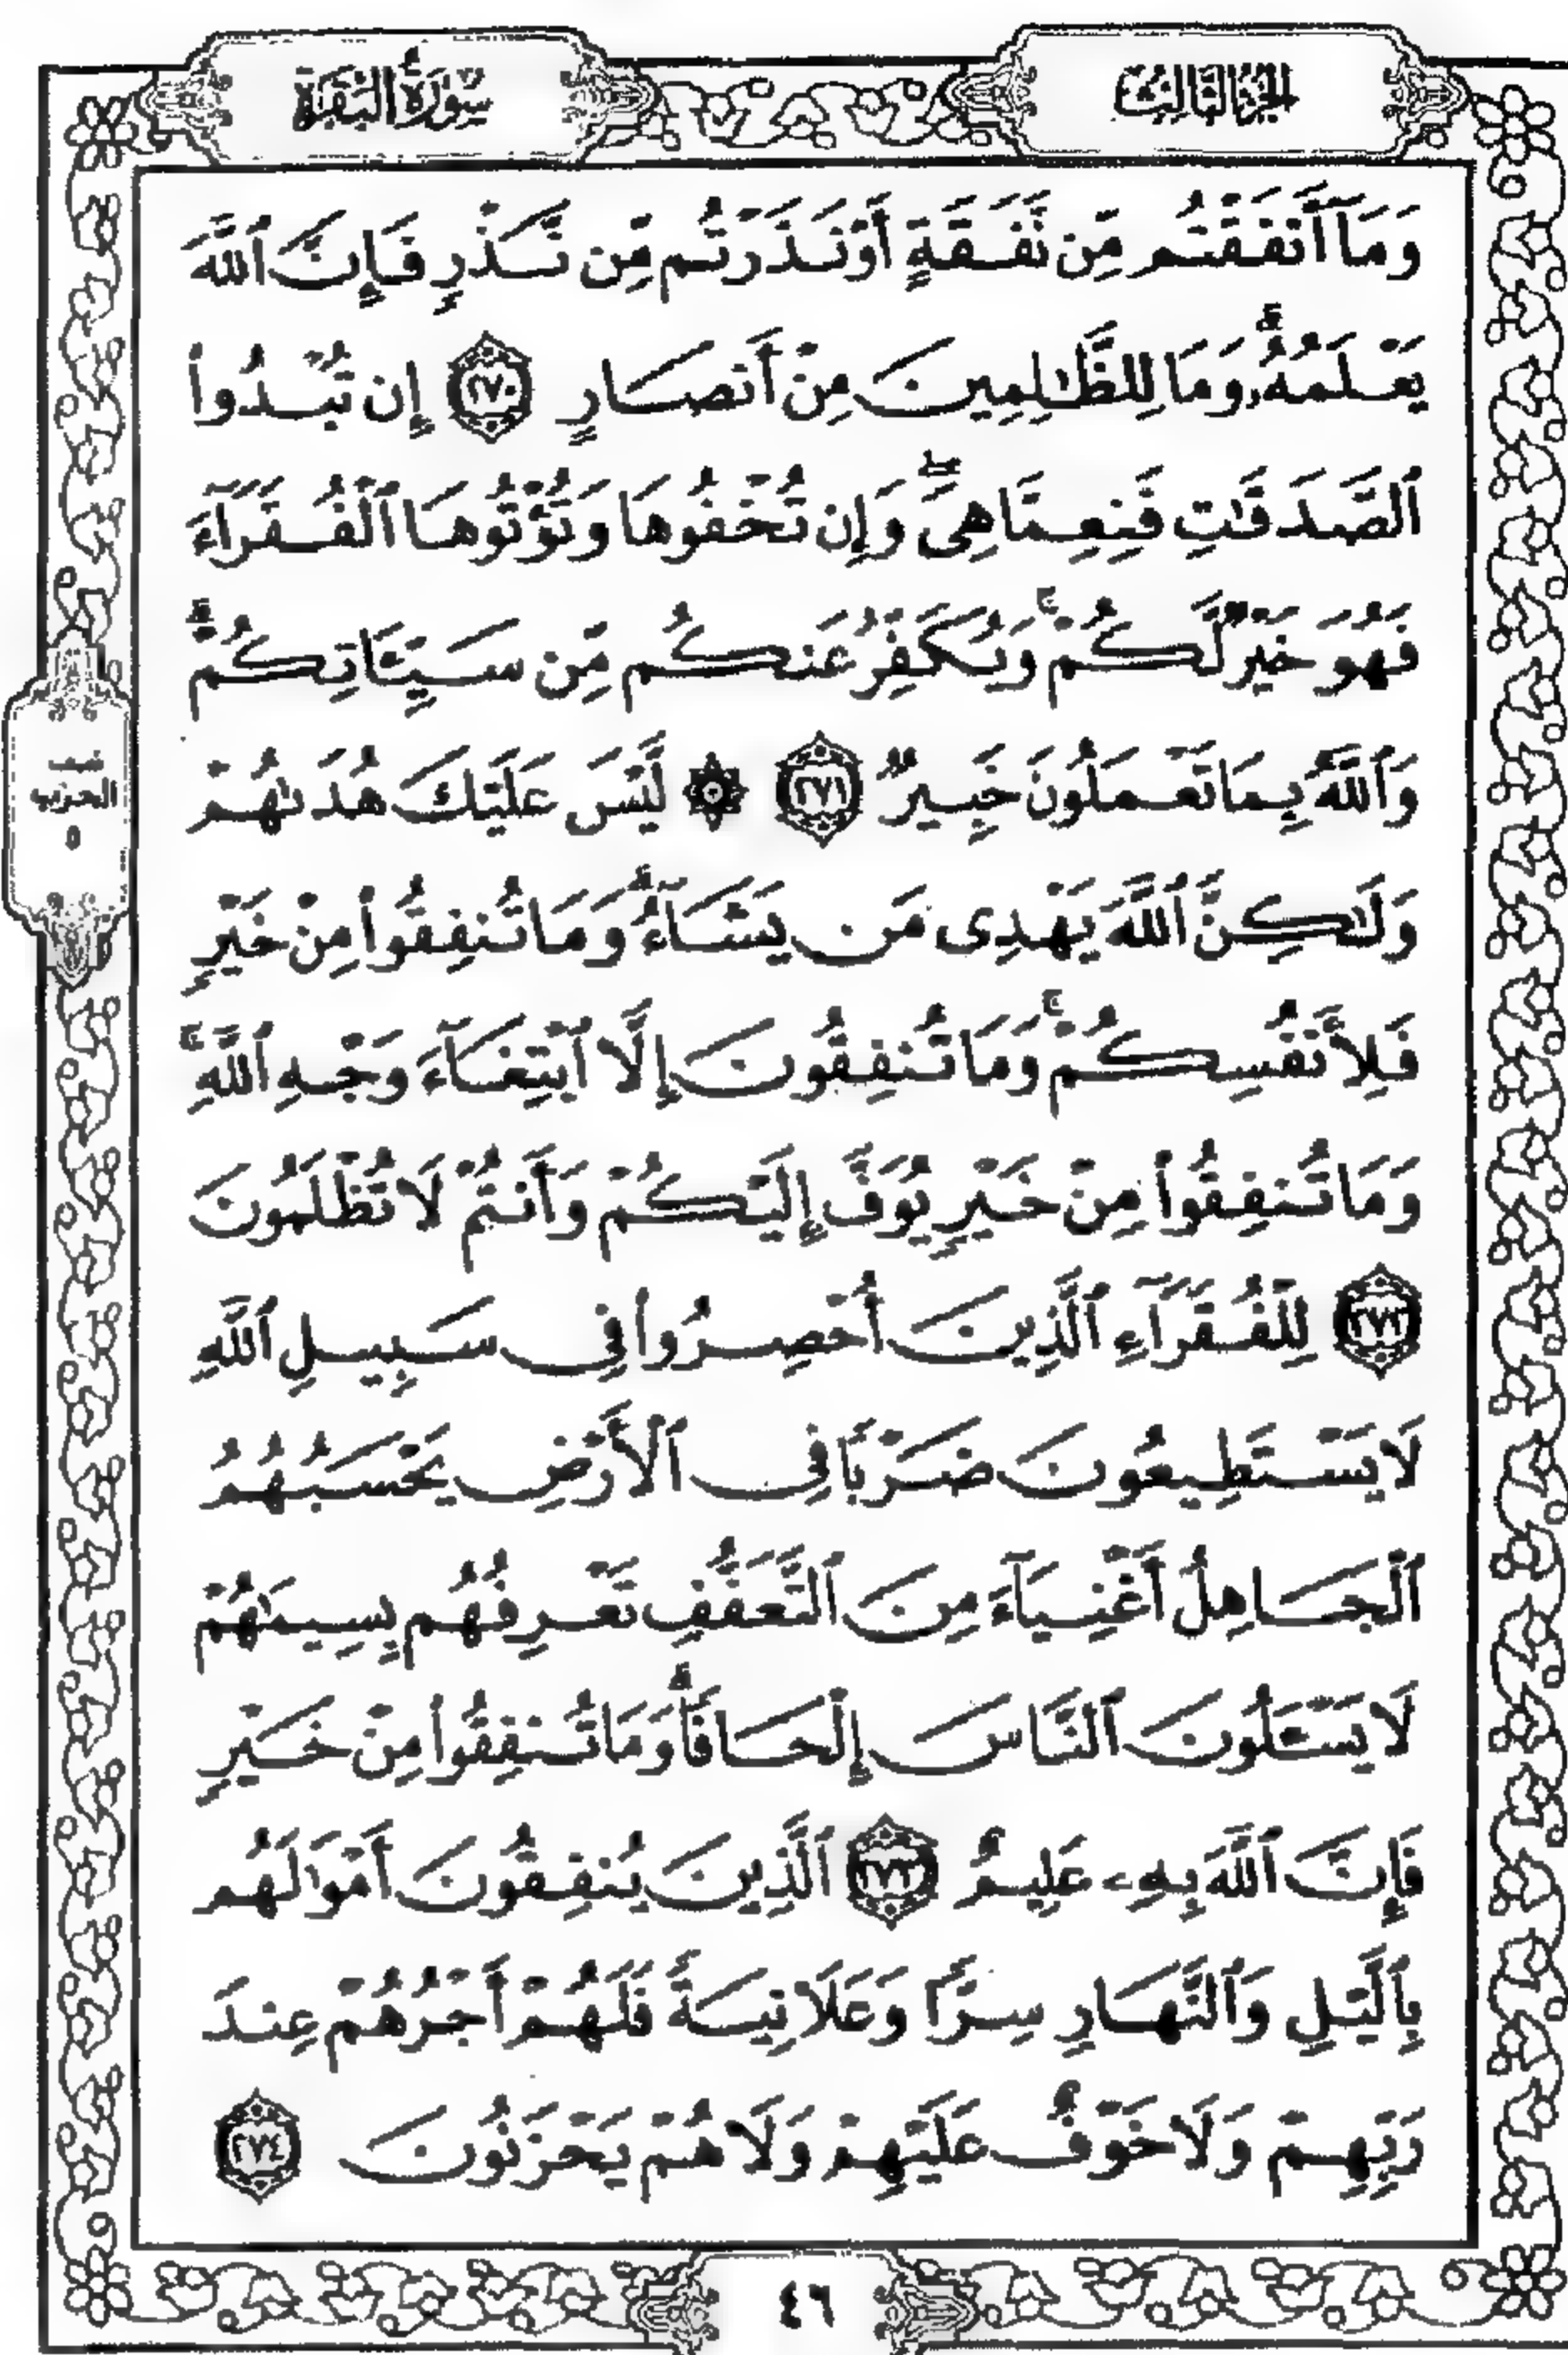 الجزء الثالث
سورة البقرة
وَمَآ أَنفَقْتُم مِّن نَّفَقَةٍ أَوْ نَذَرْتُم مِّن نَّذْرٍ فَإِنَّ ٱللَّهَ
يَعْلَمُهُۥ ۗ وَمَا لِلظَّٰلِمِينَ مِنْ أَنصَارٍ ٢٧٠ إِن تُبْدُوا۟
ٱلصَّدَقَٰتِ فَنِعِمَّا هِىَ ۖ وَإِن تُخْفُوهَا وَتُؤْتُوهَا ٱلْفُقَرَآءَ
فَهُوَ خَيْرٌ لَّكُمْ ۚ وَيُكَفِّرُ عَنكُم مِّن سَيِّـَٔاتِكُمْ ۗ
وَٱللَّهُ بِمَا تَعْمَلُونَ خَبِيرٌ ٢٧١ ۞ لَّيْسَ عَلَيْكَ هُدَىٰهُمْ
وَلَٰكِنَّ ٱللَّهَ يَهْدِى مَن يَشَآءُ ۗ وَمَا تُنفِقُوا۟ مِنْ خَيْرٍ
فَلِأَنفُسِكُمْ ۚ وَمَا تُنفِقُونَ إِلَّا ٱبْتِغَآءَ وَجْهِ ٱللَّهِ ۚ
وَمَا تُنفِقُوا۟ مِنْ خَيْرٍ يُوَفَّ إِلَيْكُمْ وَأَنتُمْ لَا تُظْلَمُونَ
٢٧٢ لِلْفُقَرَآءِ ٱلَّذِينَ أُحْصِرُوا۟ فِى سَبِيلِ ٱللَّهِ
لَا يَسْتَطِيعُونَ ضَرْبًا فِى ٱلْأَرْضِ يَحْسَبُهُمُ
ٱلْجَاهِلُ أَغْنِيَآءَ مِنَ ٱلتَّعَفُّفِ تَعْرِفُهُم بِسِيمَٰهُمْ
لَا يَسْـَٔلُونَ ٱلنَّاسَ إِلْحَافًا ۗ وَمَا تُنفِقُوا۟ مِنْ خَيْرٍ
فَإِنَّ ٱللَّهَ بِهِۦ عَلِيمٌ ٢٧٣ ٱلَّذِينَ يُنفِقُونَ أَمْوَٰلَهُم
بِٱلَّيْلِ وَٱلنَّهَارِ سِرًّا وَعَلَانِيَةً فَلَهُمْ أَجْرُهُمْ عِندَ
رَبِّهِمْ وَلَا خَوْفٌ عَلَيْهِمْ وَلَا هُمْ يَحْزَنُونَ ٢٧٤
نصف
الحزب
٥
٤٦